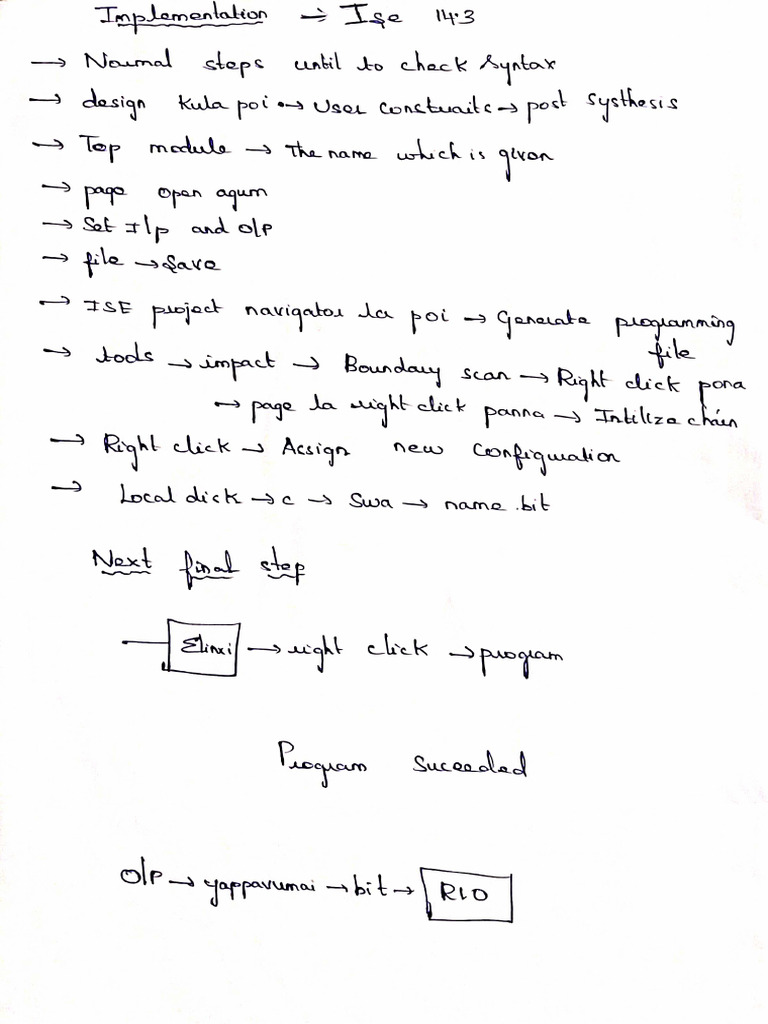 Implementation ÷ Ise 14.3
→ Normal steps until to check Syntax
→ design kula poi → User constraits → post systhesis
→ Top module → The name which is given
→ page open agum
→ Set I/p and O/P
→ file → Save
→ ISE project navigator la poi → Generate programming
file
→ tools → impact → Boundary scan → Right click pona
→ page la right click panna → Intilize chain
→ Right click → Assign new configuration
→ Local disk → c → Swa → name.bit
Next final step
Elinxi → right click → program
Program Suceeded
O/P → yappavumai → bit → R10